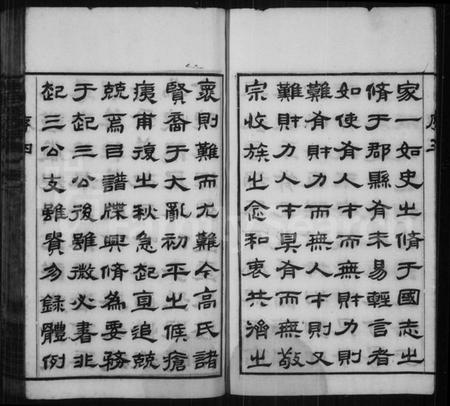 家一如史之脩于國志之
脩于郡縣有未易輕言者
如使有人才而無財力則
難有財力而無人才則又
難財力人才具有而無敬
宗收族之念和衷共濟之
衷則難而尤難今高氏諸
賢裔于大亂初平之候瘡
痍甫復之秋急起直追兢
兢焉曰譜牒興脩為要務
于起三公後雖微必書非
起三公支雖貴勿錄體例
序四